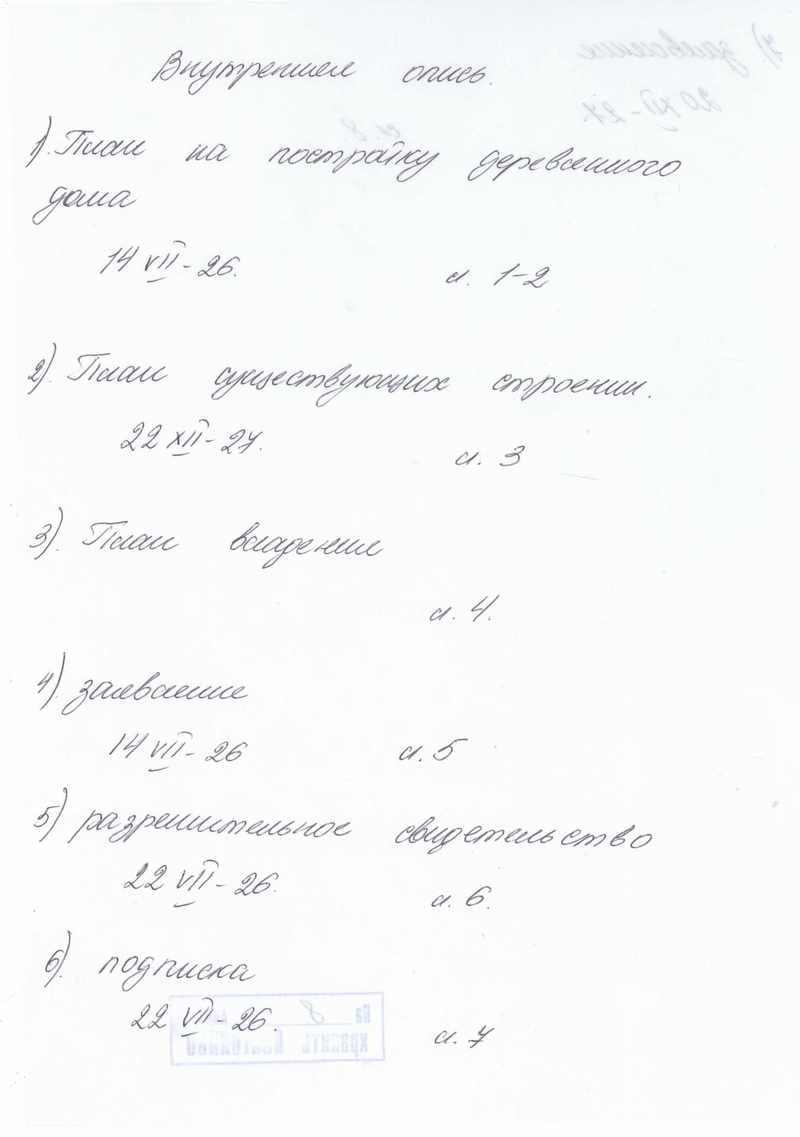 Внутренняя опись.
1). План на постройку деревянного
дома
14 VII - 26.
л. 1-2
2). План существующих строении.
22 XII - 27.
л. 3
3). План владения
л. 4.
4) заявление
14 VII - 26
л. 5
5) разрешительное свидетельство
22 VII - 26.
л. 6.
6). подписка
22 VII - 26.
л. 7
7) заявление
20 XII - 27
л 8
На 8
хранить